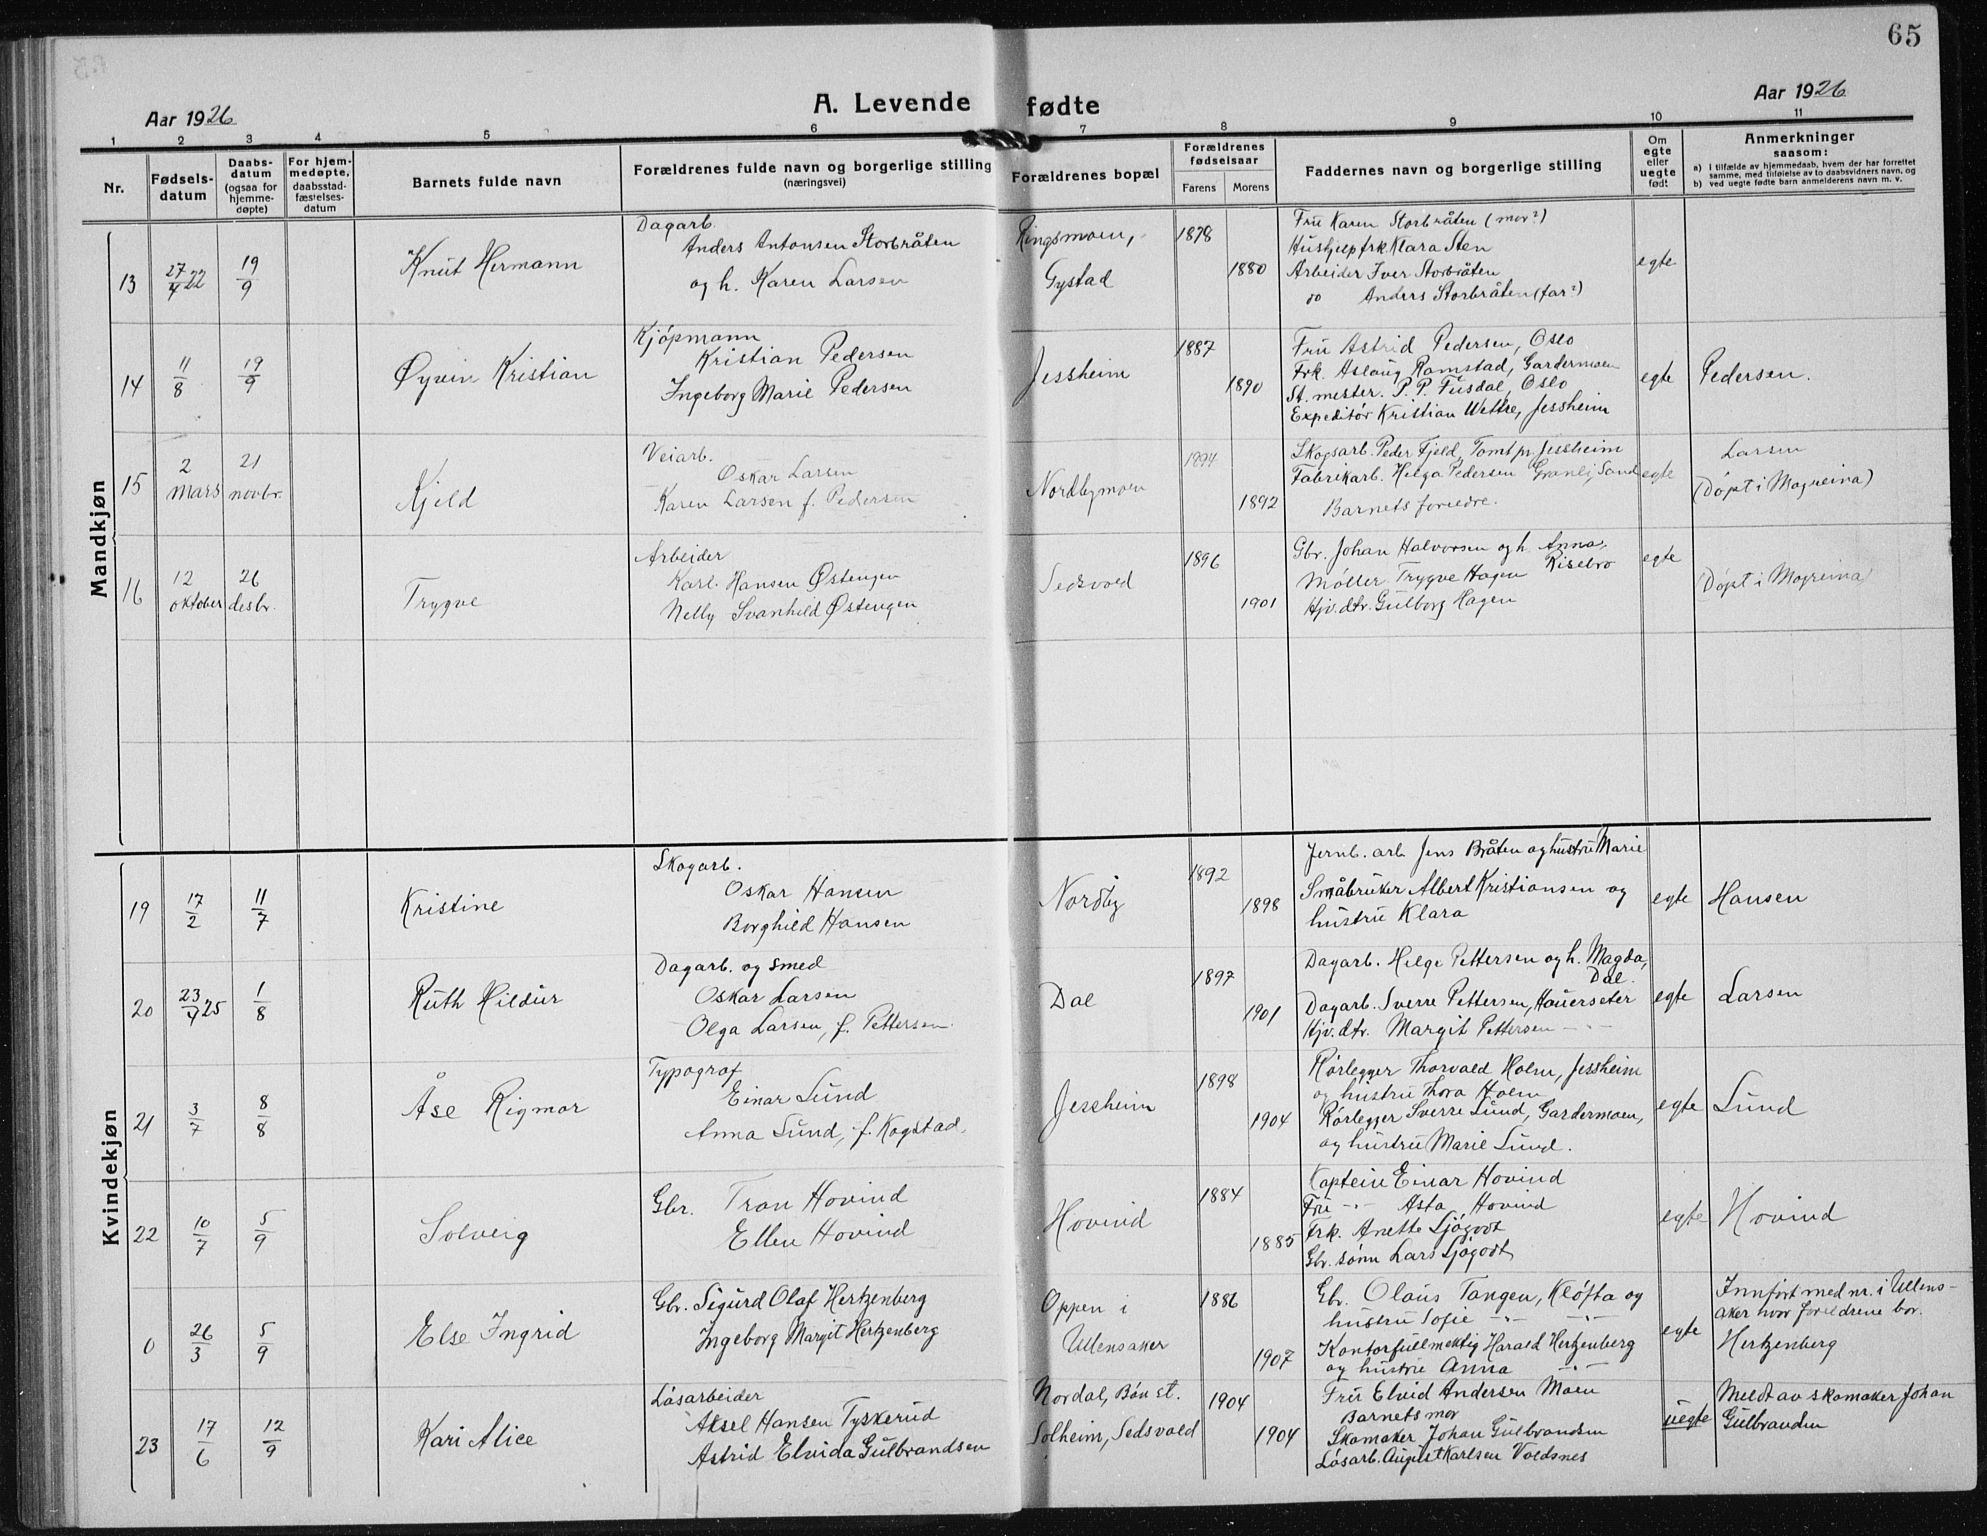 65
A. Levende fødte
Aar 1926
Aar 1926
1 2 3 4 5 6 7 8 9 10 11
Nr.
Fødsels-
datum
Daabs-
datum
(ogsaa for
hjemme-
døpte)
For hjem-
medøpte,
daabsstad-
fæstelses-
datum
Barnets fulde navn
Forældrenes fulde navn og borgerlige stilling
(næringsvei)
Forældrenes bopæl
Forældrenes
fødselsaar
Farens Morens
Faddernes navn og borgerlige stilling
Om
egte
eller
uegte
født
Anmerkninger
saasom:
a) i tilfælde av hjemmedaab, hvem der har forrettet
samme, med tilføielse av to daabsvidners navn, og
b) ved uegte fødte barn anmelderens navn m. v.
Mandkjøn
13
27/4 22
19/9
Knut Hermann
Dagarb.
Anders Antonsen Storbråten
og h. Karen Larsen
Ringsmoen,
Gystad
1878
1880
Fru Karen Storbråten (mor?)
Hushjelp frk. Klara Sten
Arbeider Iver Storbråten
do Anders Storbråten (far?)
egte
14
11/8
19/9
Øyvin Kristian
Kjöpmann
Kristian Pedersen
Ingeborg Marie Pedersen
Jessheim
1887
1890
Fru Astrid Pedersen, Oslo
Frk. Aslaug Ramstad, Gardermoen
St. mester. P. P. Fusdal, Oslo
Expeditör Kristian Wettre, Jessheim
egte
Pedersen.
15
2
mars
21
novbr.
Kjeld
Veiarb.
Oskar Larsen
Karen Larsen f. Pedersen
Nordbymoen
1894
1892
Skogsarb. Peder Fjeld, Tomt pr. Jessheim
Fabrikarb. Helga Pedersen Granli, Sand
Barnets foreldre.
egte
Larsen
(Döpt i Magneina)
16
12
oktober
26
desbr.
Trygve
Arbeider
Karl Hansen Østengen
Nelly Svanhild Østengen
Sedsvold
1896
1901
Gbr. Johan Halvorsen og h. Anna,
Risebro
Møller Trygve Hagen
Hjv. dtr. Gulborg Hagen
egte
(Döpt i Magneina)
Kvindekjøn
19
17/2
11/7
Kristine
Skogarb.
Oskar Hansen
Borghild Hansen
Nordby
1892
1898
Jernb. arb. Jens Bråten og hustru Marie
Småbruker Albert Kristiansen og
hustru Klara
egte
Hansen
20
23/4 25
1/8
Ruth Hildur
Dagarb. og smed
Oskar Larsen
Olga Larsen, f. Pettersen.
Dal
1897
1901
Dagarb. Helge Pettersen og h. Magda,
Dal.
Dagarb. Sverre Pettersen, Hauerseter
Hjv. dtr. Margit Pettersen -"-
egte
Larsen
21
3/7
8/8
Åse Rigmor
Typograf
Einar Lund
Anna Lund, f. Kogstad.
Jessheim
1898
1904
Rörlegger Thorvald Holm, Jessheim
og hustru Thora Holm
Rörlegger Sverre Lund, Gardermoen,
og hustru Marie Lund.
egte
Lund
22
10/7
5/9
Solveig
Gbr. Tron Hovind
Ellen Hovind
Hovind
1884
1885
Kaptein Einar Hovind
Fru -"- Asta Hovind
Frk. Anette Sjögodt
Gbr. sönn Lars Sjögodt
egte
Hovind
0
26/3
5/9
Else Ingrid
Gbr. Sigurd Olaf Hertzenberg
Ingeborg Margit Hertzenberg
Oppen i
Ullensaker
1886
1907
Gbr. Olaus Tangen, Klöfta og
hustru Sofie -"- -"-
Kontorfullmektig Harald Hertzenberg
og hustru Anna -"-
egte
Innfört med nr. i Ullens-
aker hvor foreldrene bor.
Hertzenberg
23
17/6
12/9
Kari Alice
Lösarbeider
Aksel Hansen Tyskerud
Astrid Elvida Gulbrandsen
Nordal, Bön st.
Solheim, Sedsvold
1904
1904
Fru Elvid Andersen Moen
Barnets mor
Skomaker Johan Gulbrandsen
Lösarb. August Karlsen Voldsnes
uegte
Meldt av skomaker Johan
Gulbrandsen